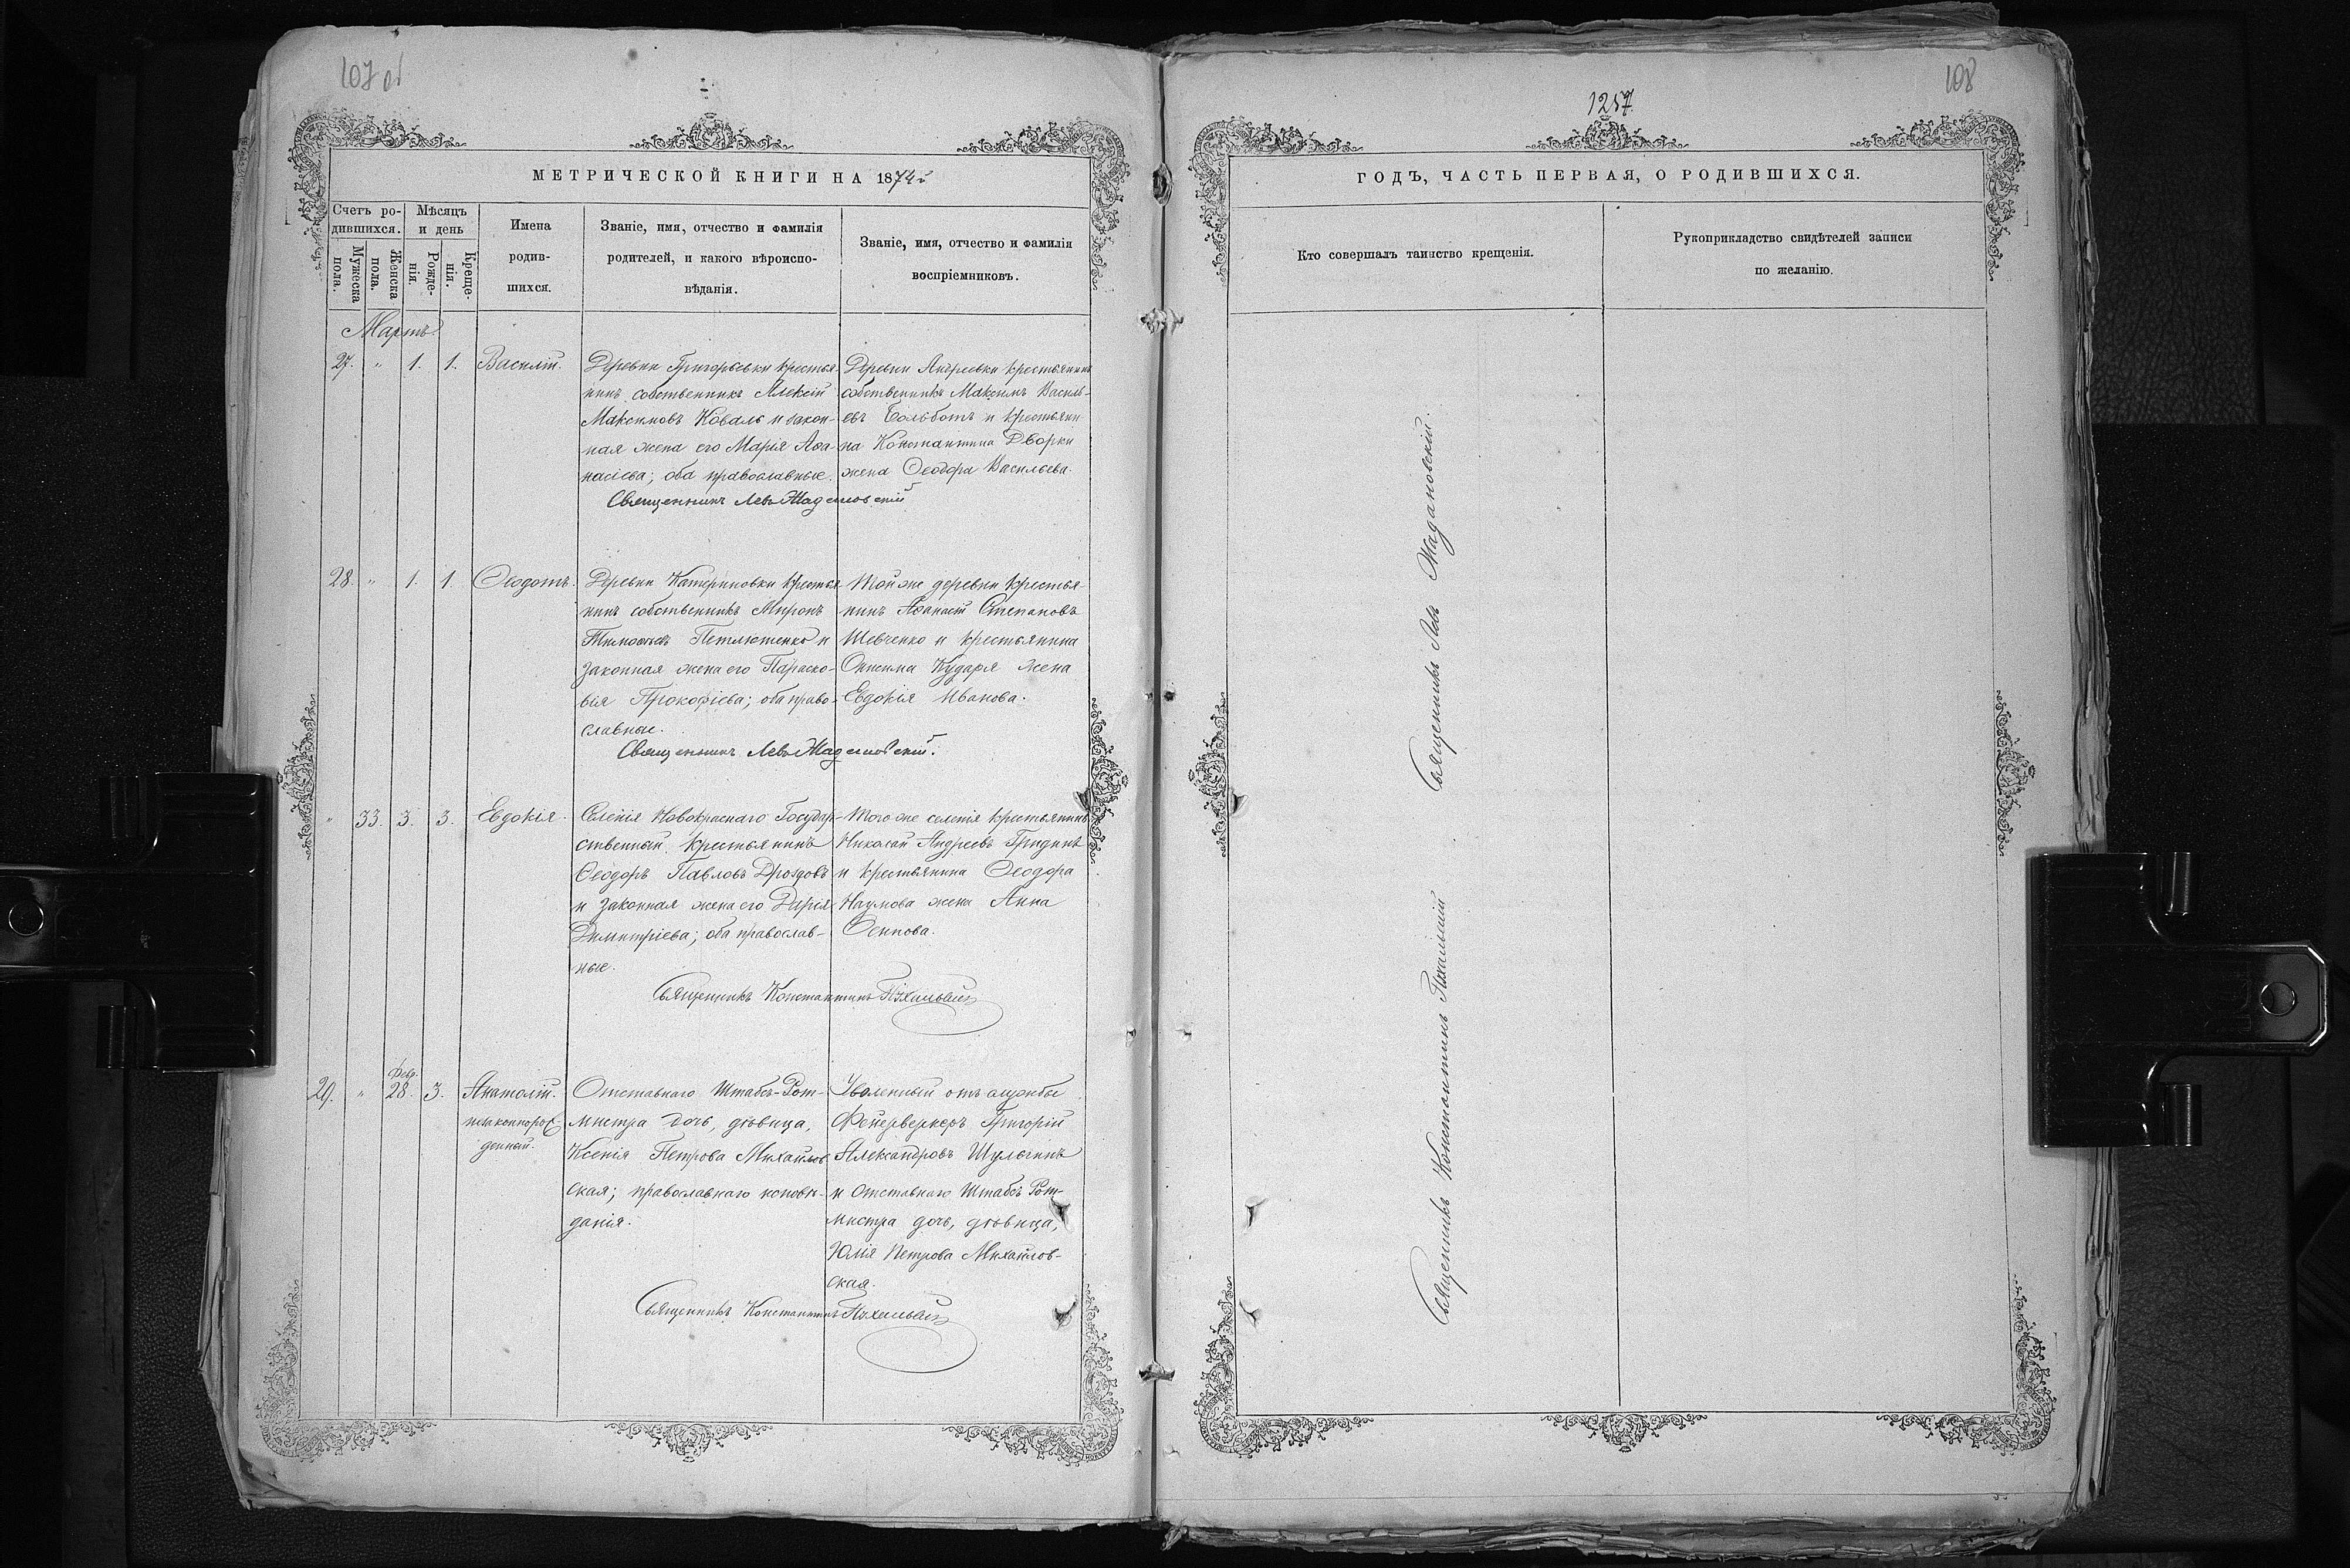 107 об
МЕТРИЧЕСКОЙ КНИГИ НА 1874й
Счетъ ро-
дившихся.
Мужеска
пола.
Женска
пола.
Мѣсяцъ
и день
Рожде-
нія.
Креще-
нія.
Имена
родив-
шихся.
Званіе, имя, отчество и фамилія
родителей, и какого вѣроиспо-
вѣданія.
Званіе, имя, отчество и фамилія
воспріемниковъ.
Мартъ
27. " 1. 1. Василій.
Деревни Григорьевки крестья
нинъ собственникъ Алексій
Максимовъ Коваль и закон-
ная жена его Марія Аѳа-
насіева; оба православные.
Деревни Андреевки крестьянинъ
собственникъ Максимъ Василь-
евъ Больботъ и крестьяни
на Константина Дворки
жена Ѳеодора Васильева.
Священникъ Левъ Жадановскій
28. " 1. 1. Ѳеодотъ.
Деревни Катериновки крестья
нинъ собственникъ Миронъ
Тимоѳеевъ Петлютенко и
законная жена его Параско-
вія Прокофіева; оба право-
славные.
Той же деревни крестья-
нинъ Аѳанасій Степановъ
Шевченко и крестьянина
Онисима Кударя жена
Евдокія Иванова.
Священникъ Левъ Жадановскій.
" 33. 3. 3. Евдокія.
Селенія Новокраснаго Государ-
ственный крестьянинъ
Ѳеодоръ Павловъ Дроздовъ
и законная жена его Дарія
Димитріева; оба православ-
ные.
Того же селенія крестьянинъ
Николай Андреевъ Гридинъ
и крестьянина Ѳеодора
Наумова жена Анна
Осипова.
Священникъ Константинъ
29. " Февр. 28. 3. Анатолій.
незаконорож
денный.
Отставнаго Штабсъ-Рот-
мистра дочь, дѣвица,
Ксенія Петрова Михайлов
ская; православнаго исповѣ-
данія.
Уволенный отъ службы
Фейерверкеръ Григорій
Александровъ Шульгинъ
и Отставнаго Штабсъ Рот-
мистра дочь, дѣвица,
Юлія Петрова Михайлов-
ская.
Священникъ Константинъ
108
1257
ГОДЪ, ЧАСТЬ ПЕРВАЯ, О РОДИВШИХСЯ.
Кто совершалъ таинство крещенія.
Рукоприкладство свидѣтелей записи
по желанію.
Священникъ Левъ Жадановскій.
Священникъ Константинъ